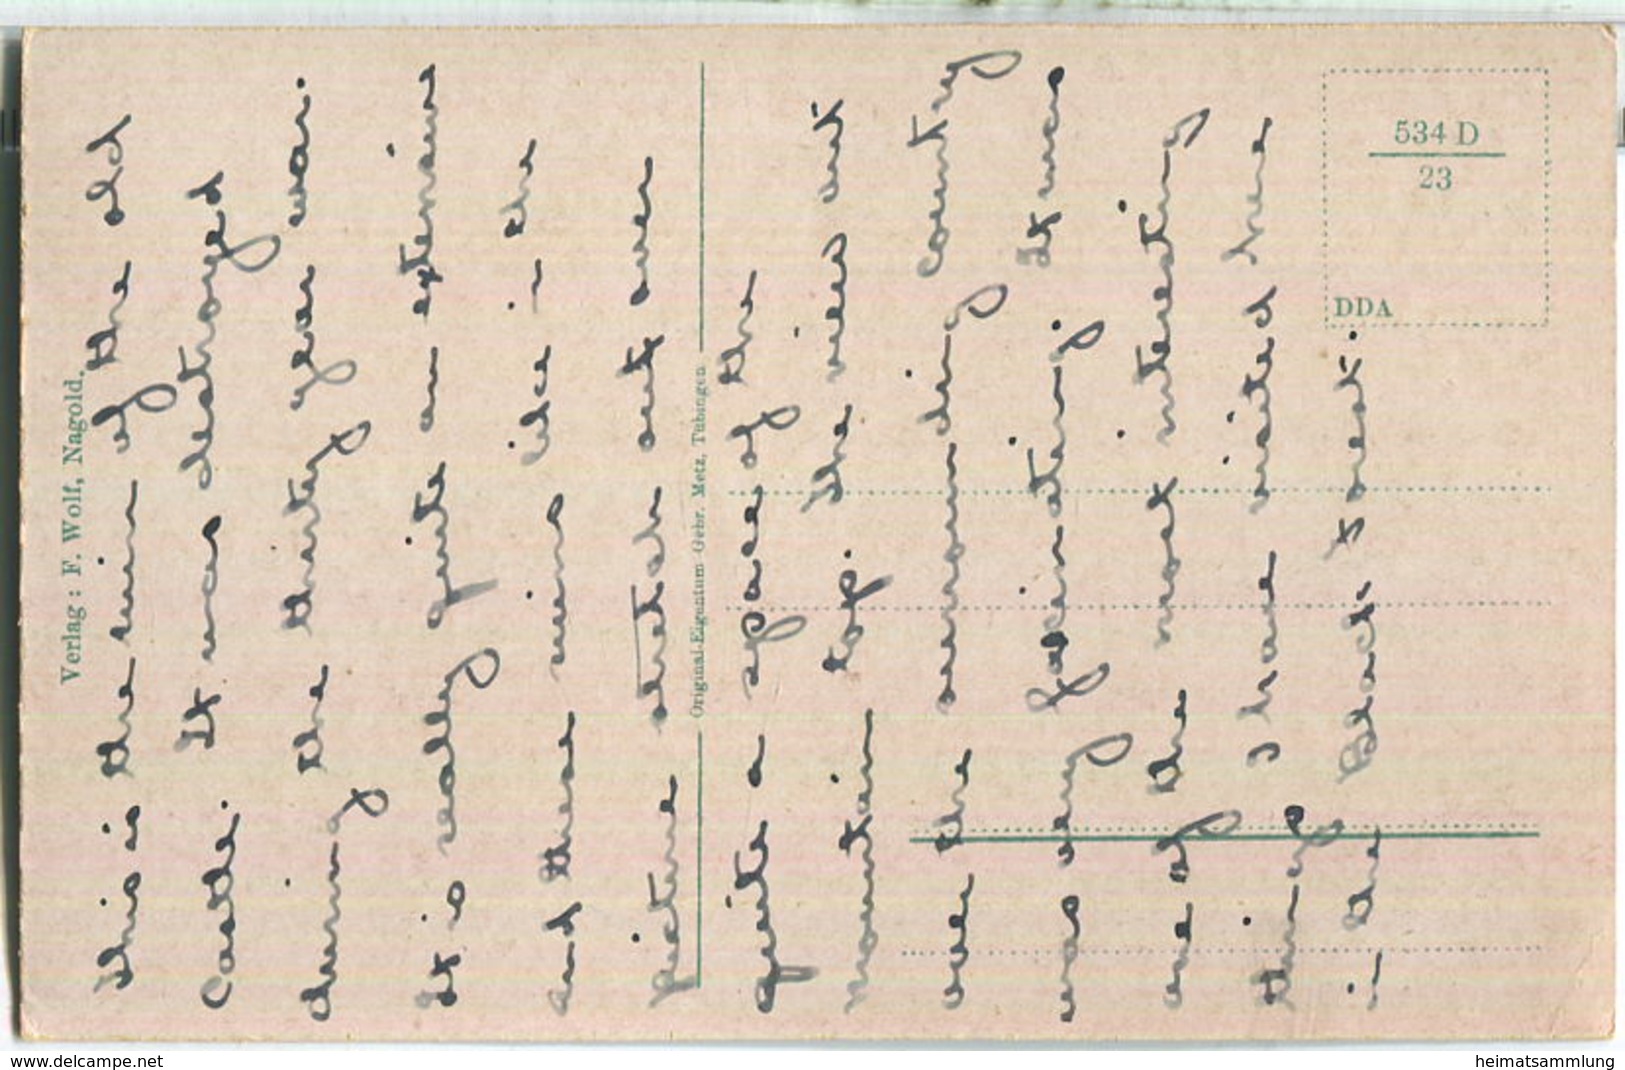 Verlag: F. Wolf, Nagold.
This is the ruin of the old
Castle. It was destroyed
during the thirty year war.
It is really quite an extensive
and these ruins like in the
picture stretch out over
quite a space of the
mountain top. The view out
over the surrounding country
was very fascinating. It was
one of the most interesting
things I have visited here
in the Black Forest.
Original-Eigentum Gebr. Metz, Tübingen
534 D
23
DDA
www.delcampe.net
heimatsammlung